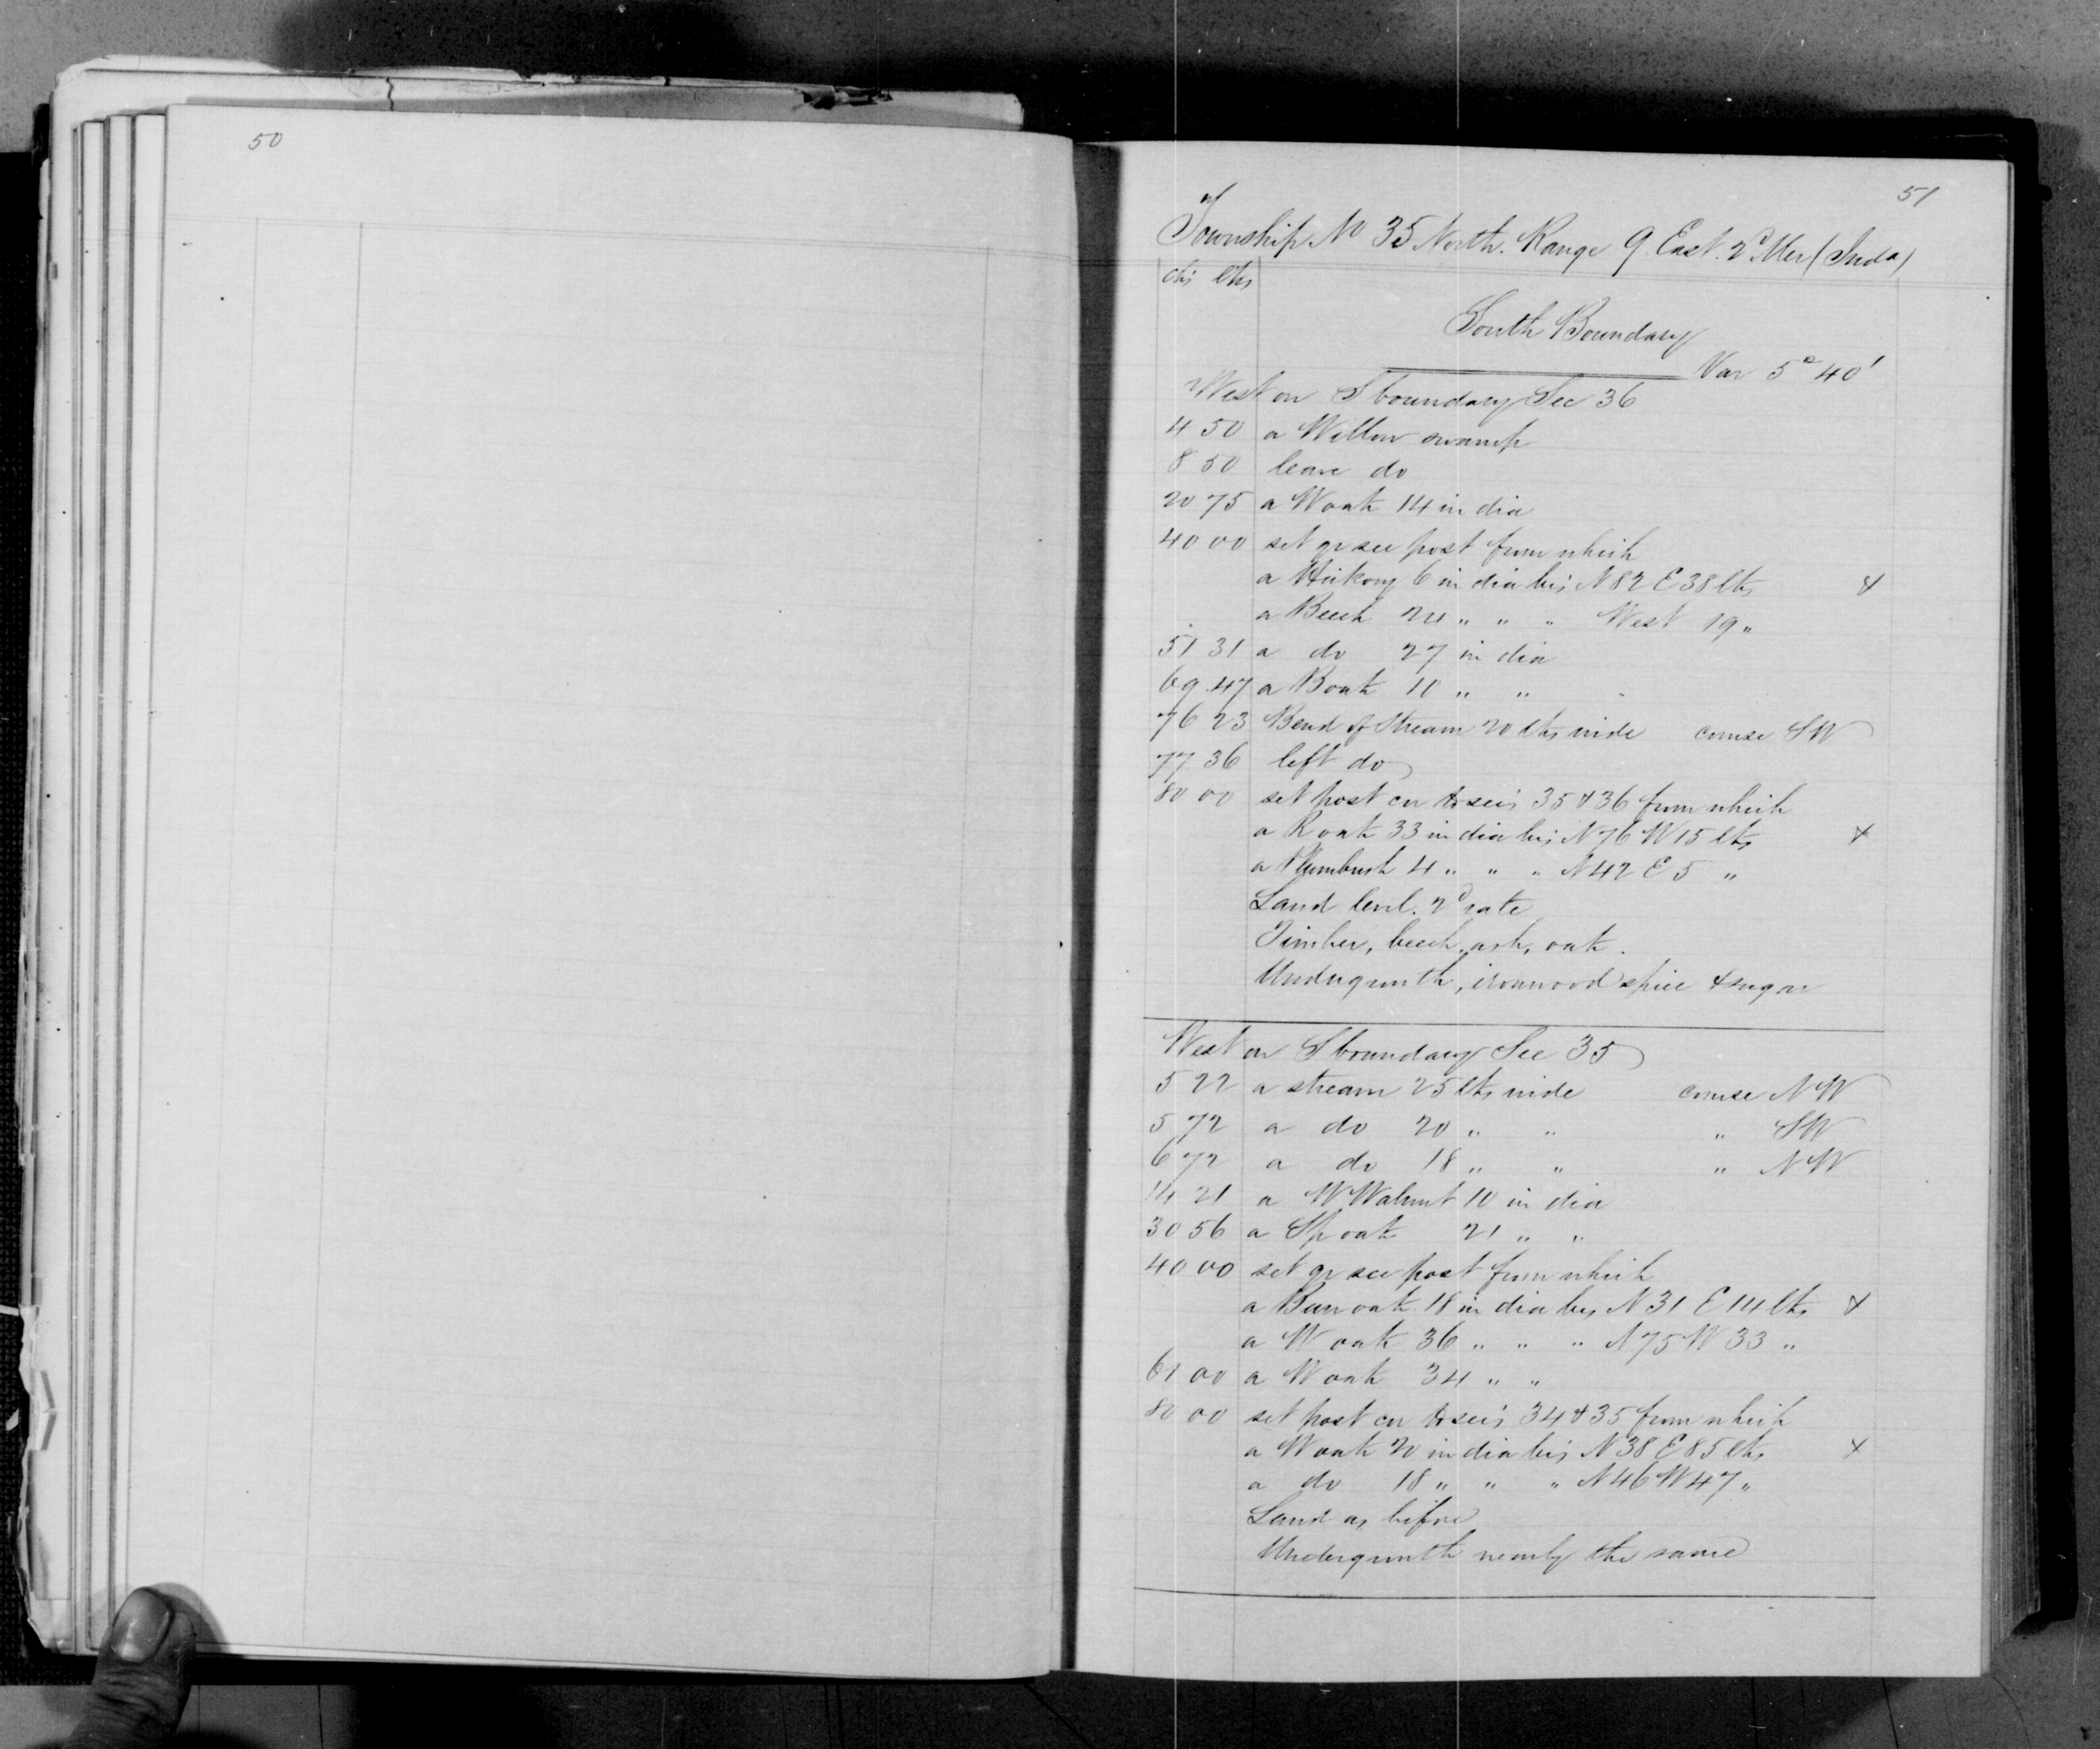 50
51
Township No 35 North. Range 9 East. 2d Mer (Inda)
chs lks
South Boundary
Var 5° 40'
West on S boundary Sec 36
4 50 a Willow swamp
8 50 leave do
20 75 a W oak 14 in dia
40 00 set qr sec post from which
a Hickory 6 in dia brs N 82 E 38 lks &
a Beech 24 " " " West 19 "
51 31 a do 27 in dia
69.47 a B oak 10 " "
76 23 Bend of Stream 20 lks wide course SW
77 36 left do
80 00 set post cor to secs 35 & 36 from which
a R oak 33 in dia brs N 76 W 15 lks &
a Plumbush 4 " " " N 42 E 5 "
Land level. 2d rate
Timber, beech, ash, oak.
Undergrowth, ironwood spice & sugar
West on S boundary Sec 35
5 22 a stream 25 lks wide course NW
5 72 a do 20 " " " SW
6 72 a do 18 " " " NW
14 21 a W Walnut 10 in dia
30 56 a Sp oak 21 " "
40 00 set qr sec post from which
a Burr oak 18 in dia brs N 31 E 14 lks &
a W oak 36 " " " N 75 W 33 "
61 00 a W oak 34 " "
80 00 set post cor to secs 34 & 35 from which
a W oak 20 in dia brs N 38 E 85 lks &
a do 18 " " " N 46 W 47 "
Land as before
Undergrowth nearly the same